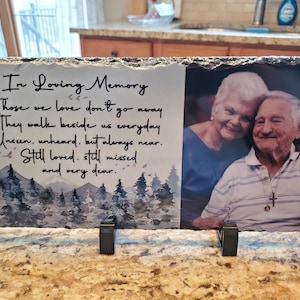 In Loving Memory
Those we love don't go away
They walk beside us everyday
Unseen, unheard, but always near.
Still loved, still missed
and very dear.